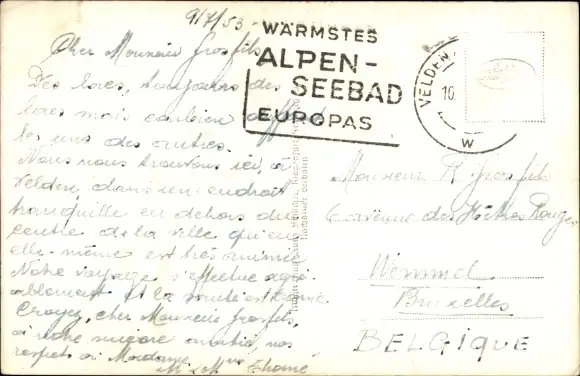 9/7/53
Cher Monsieur Grosfils,
Des lacs, toujours des
lacs mais combien
les uns des autres.
Nous nous trouvons ici, à
Velden, dans un endroit
tranquille en dehors du
centre de la ville qui en
elle-même est très animée.
Notre voyage s'effectue agré-
ablement et la
Croyez, cher Monsieur Grosfils,
à notre sincère amitié, nos
respects à Madame.
M. & Mme
WÄRMSTES
ALPEN-
SEEBAD
EUROPAS
VELDEN
10.
W
Monsieur R. Grosfils
6 avenue des Hêtres Rouges
Wemmel
Bruxelles
BELGIQUE